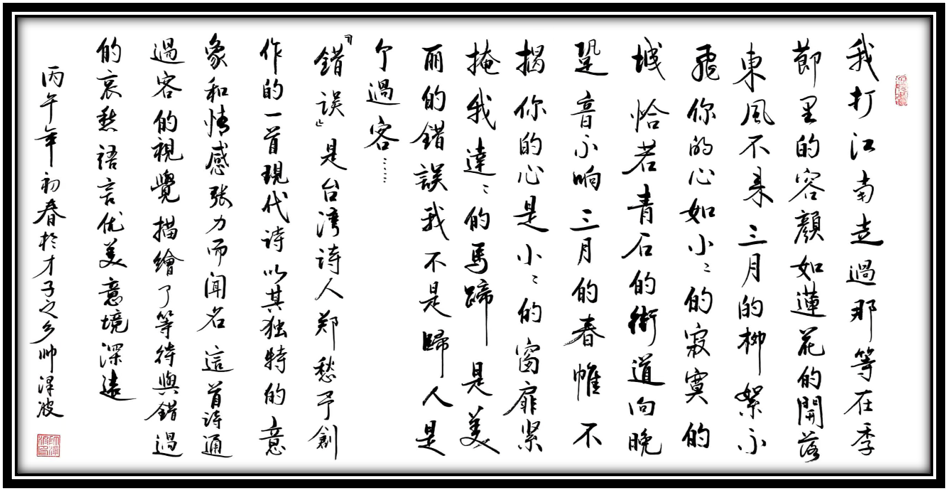 我打江南走過那等在季
節里的容顏如蓮花的開落
東風不来三月的柳絮不
飛你的心如小〻的寂寞的
城恰若青石的街道向晚
跫音不响三月的春帷不
揭你的心是小〻的窗扉紧
掩我達〻的馬蹄是美
丽的錯誤我不是歸人是
个過客……
『錯误』是台湾诗人郑愁予創
作的一首現代诗以其独特的意
象和情感张力而闻名這首诗通
過客的視覺描繪了等待與錯過
的哀愁語言优美意境深遠
丙午年初春於才子之乡帅泽波